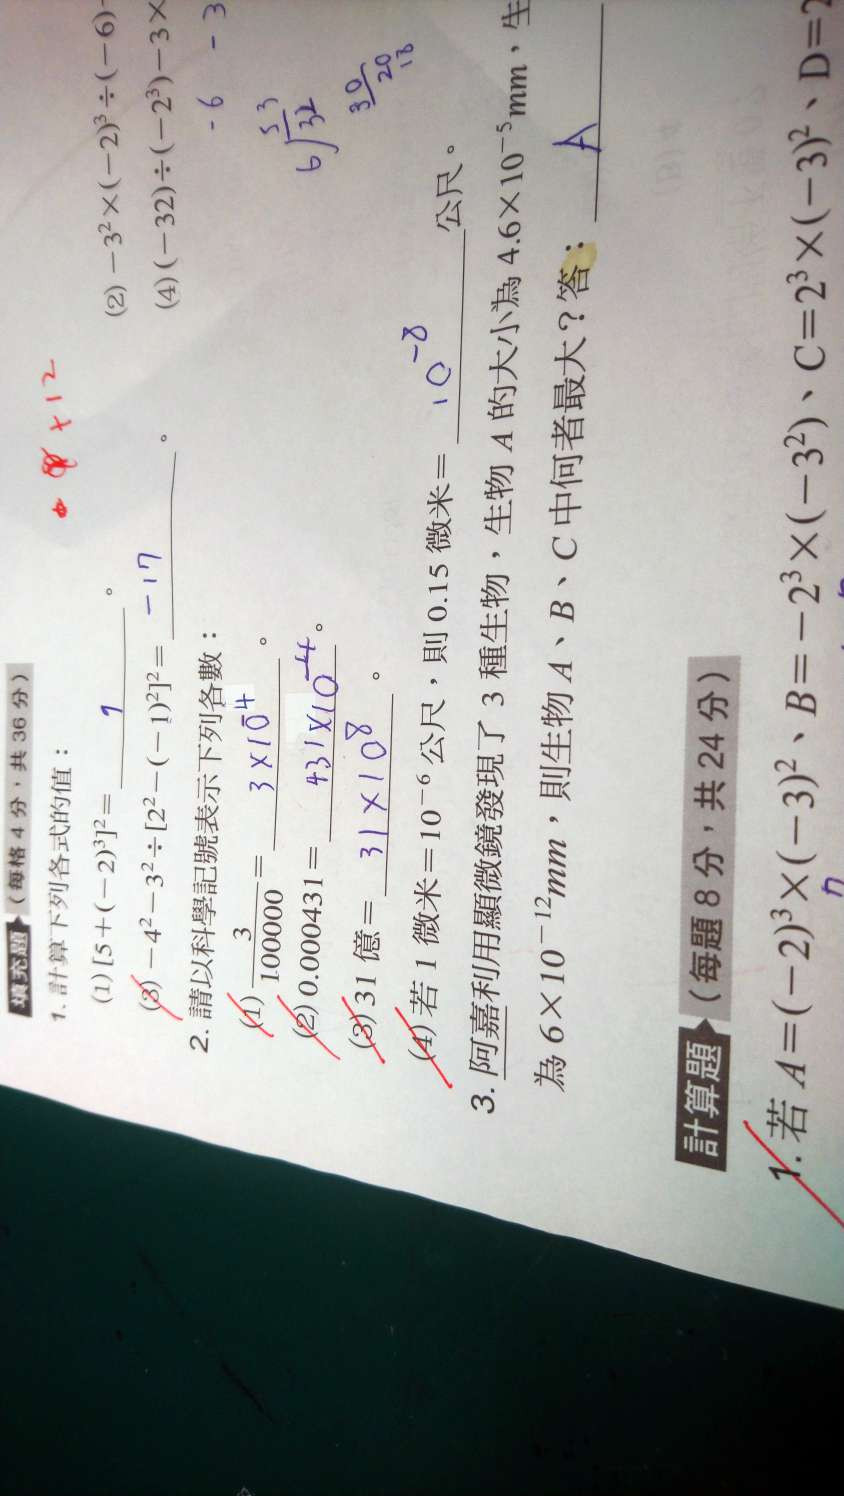 填充題 (每格 4 分，共 36 分)
1. 計算下列各式的值：
+12
(1) [5+(-2)³]²= 9 。
(2) -3²×(-2)³÷(-6)-
(3) -4²-3²÷[2²-(-1)²]²= -17 。
(4) (-32)÷(-2³)-3×
-6 -3
2. 請以科學記號表示下列各數：
(1) 3/100000 = 3×10⁻⁴ 。
(2) 0.000431= 431×10⁻⁴ 。
(3) 31 億= 31×10⁸ 。
(4) 若 1 微米=10⁻⁶ 公尺，則 0.15 微米= 10⁻⁸ 公尺。
3. 阿嘉利用顯微鏡發現了 3 種生物，生物 A 的大小為 4.6×10⁻⁵mm，生
為 6×10⁻¹²mm，則生物 A、B、C 中何者最大？答： A
計算題 (每題 8 分，共 24 分)
1. 若 A=(-2)³×(-3)²、B=-2³×(-3²)、C=2³×(-3)²、D=2